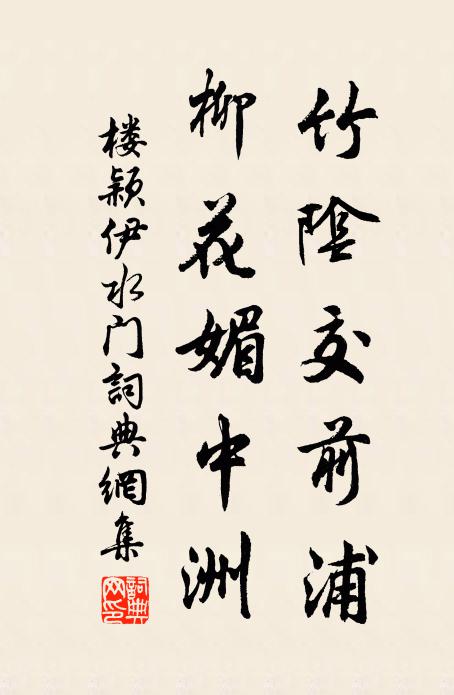 竹陰交前浦
柳花媚中洲
楼颖伊水门詞典網集
詞典網印